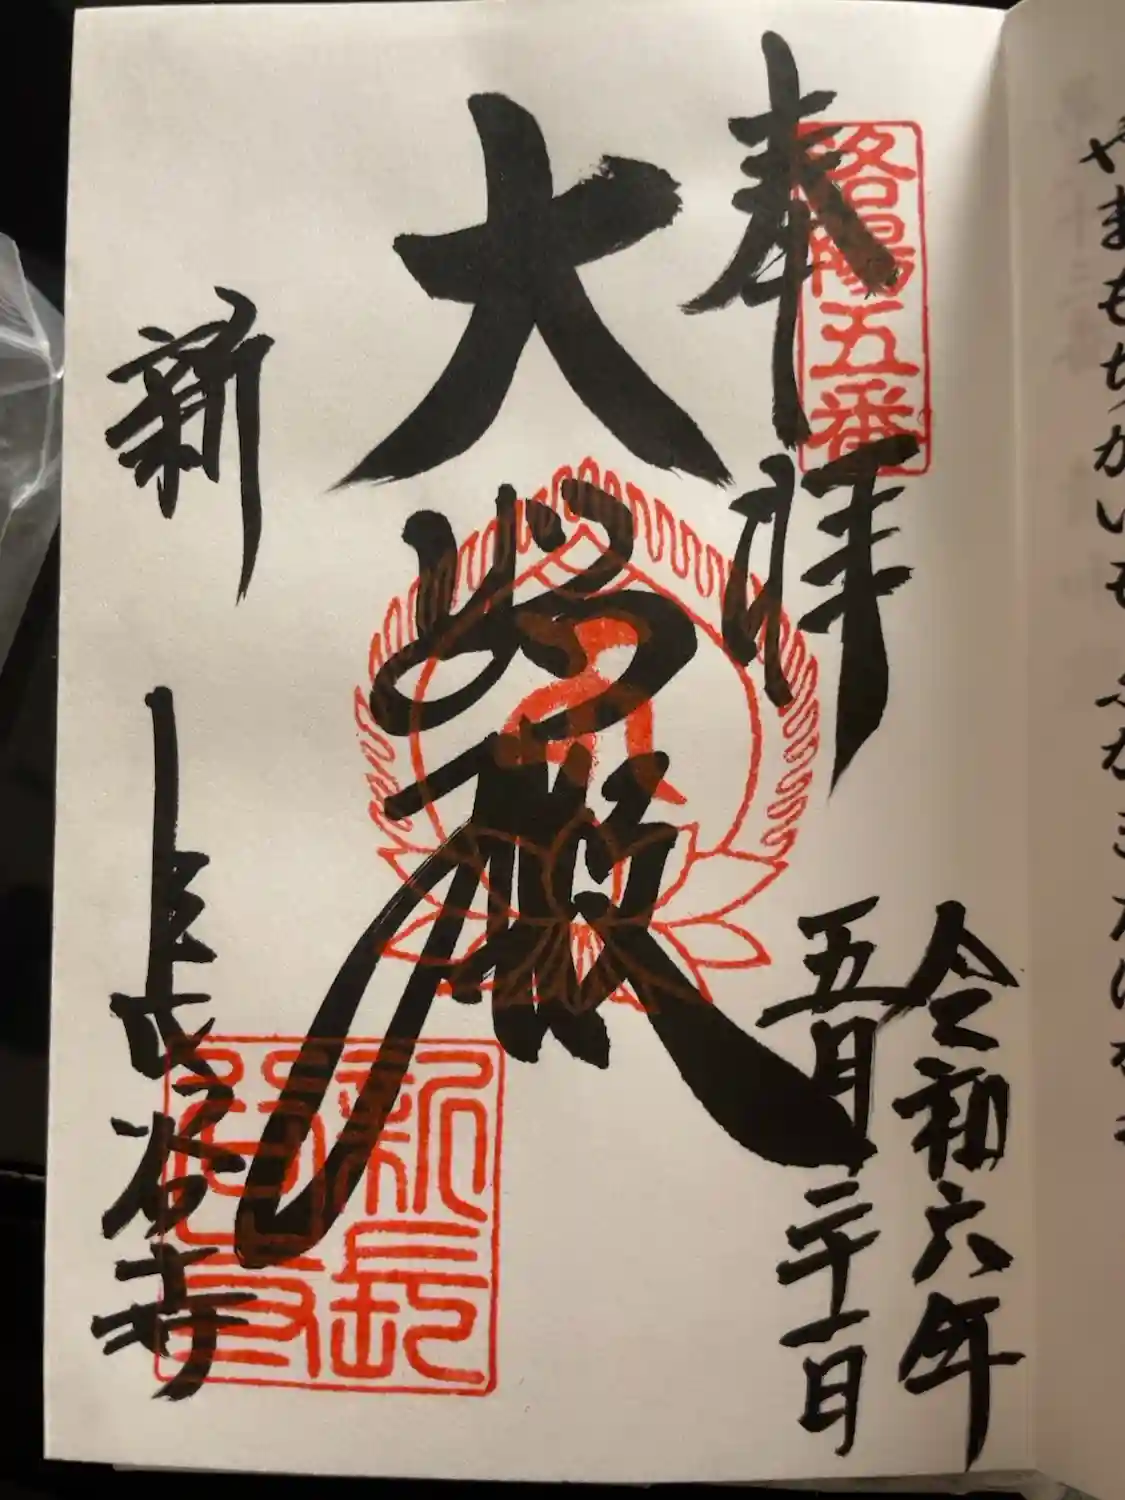 やまもちかいも
奉拝
洛陽五番
令和六年
五月二十一日
大悲殿
新長谷寺
新長谷寺